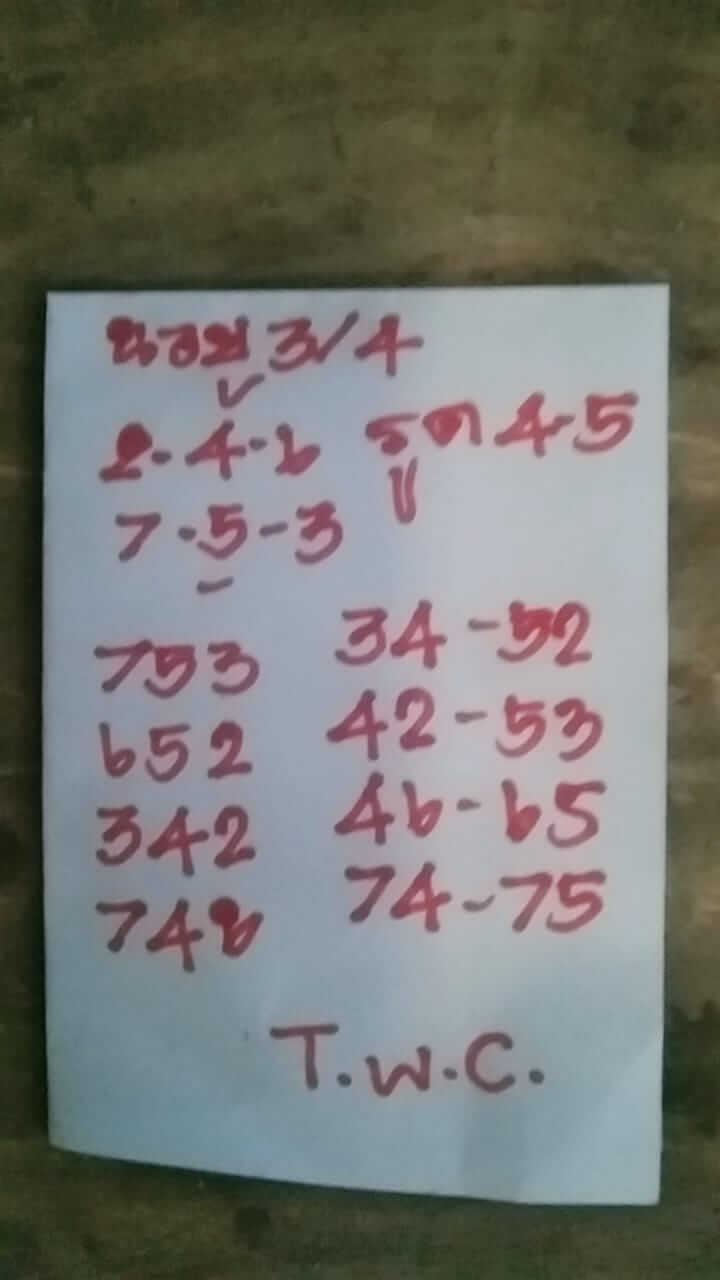 นอย 3/4
2.4.6 รูด 4-5
7.5-3
753 34-52
652 42-53
342 46-65
746 74-75
T.W.C.